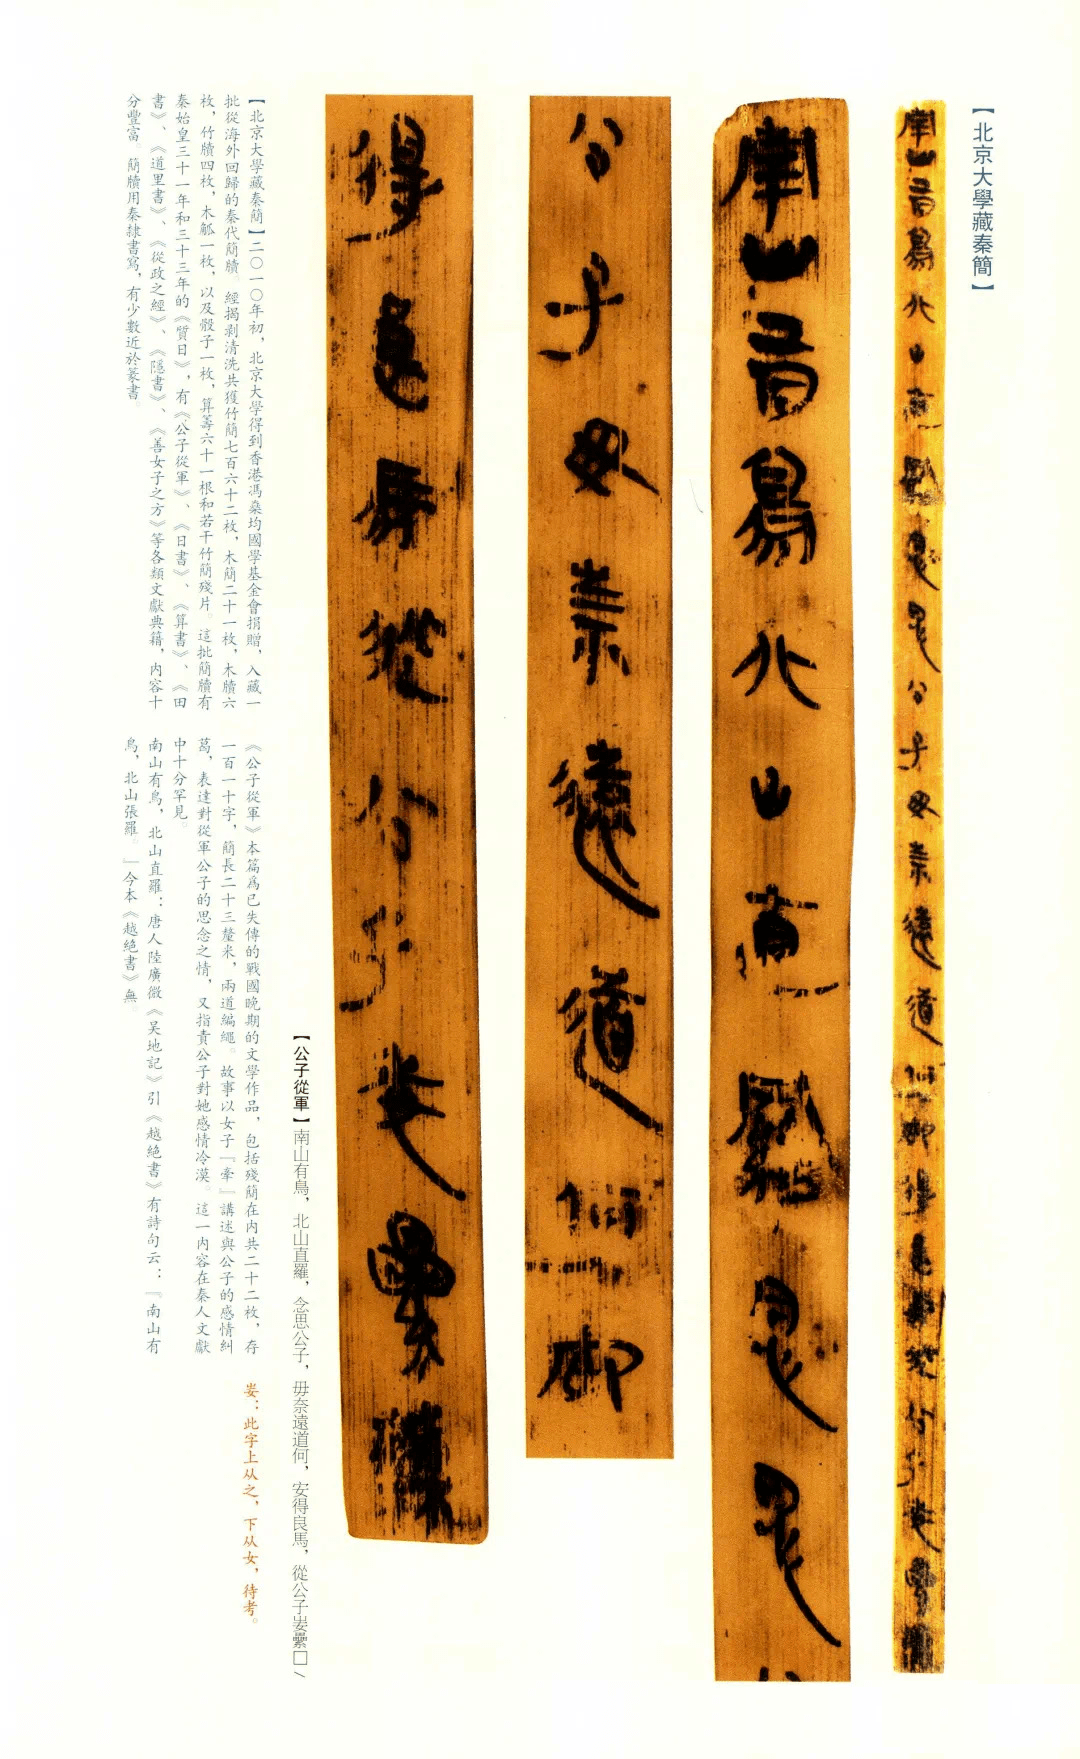 【北京大學藏秦簡】
南山有鳥北山直羅念思公子毋奈遠道何安得良馬從公子
南山有鳥北山直羅念思
公子毋奈遠道何安
得良馬從公子㚣纍
【公子從軍】南山有鳥，北山直羅，念思公子，毋奈遠道何，安得良馬，從公子㚣纍□/
【北京大學藏秦簡】二〇一〇年初，北京大學得到香港馮燊均國學基金會捐贈，入藏一
批從海外回歸的秦代簡牘。經揭剥清洗共獲竹簡七百六十二枚，木簡二十一枚，木牘六
枚，竹牘四枚，木觚一枚，以及骰子一枚，算籌六十一根和若干竹簡殘片。這批簡牘有
秦始皇三十一年和三十三年的《質日》，有《公子從軍》、《日書》、《算書》、《田
書》、《道里書》、《從政之經》、《隱書》、《善女子之方》等各類文獻典籍，内容十
分豐富。簡牘用秦隸書寫，有少數近於篆書。
《公子從軍》本篇爲已失傳的戰國晚期的文學作品，包括殘簡在内共二十二枚，存
一百一十字，簡長二十三釐米，兩道編繩。故事以女子「牽」講述與公子的感情糾
葛，表達對從軍公子的思念之情，又指責公子對她感情冷漠。這一内容在秦人文獻
中十分罕見。
南山有鳥，北山直羅：唐人陸廣微《吴地記》引《越絶書》有詩句云：「南山有
鳥，北山張羅。」今本《越絶書》無。
㚣：此字上从之，下从女，待考。